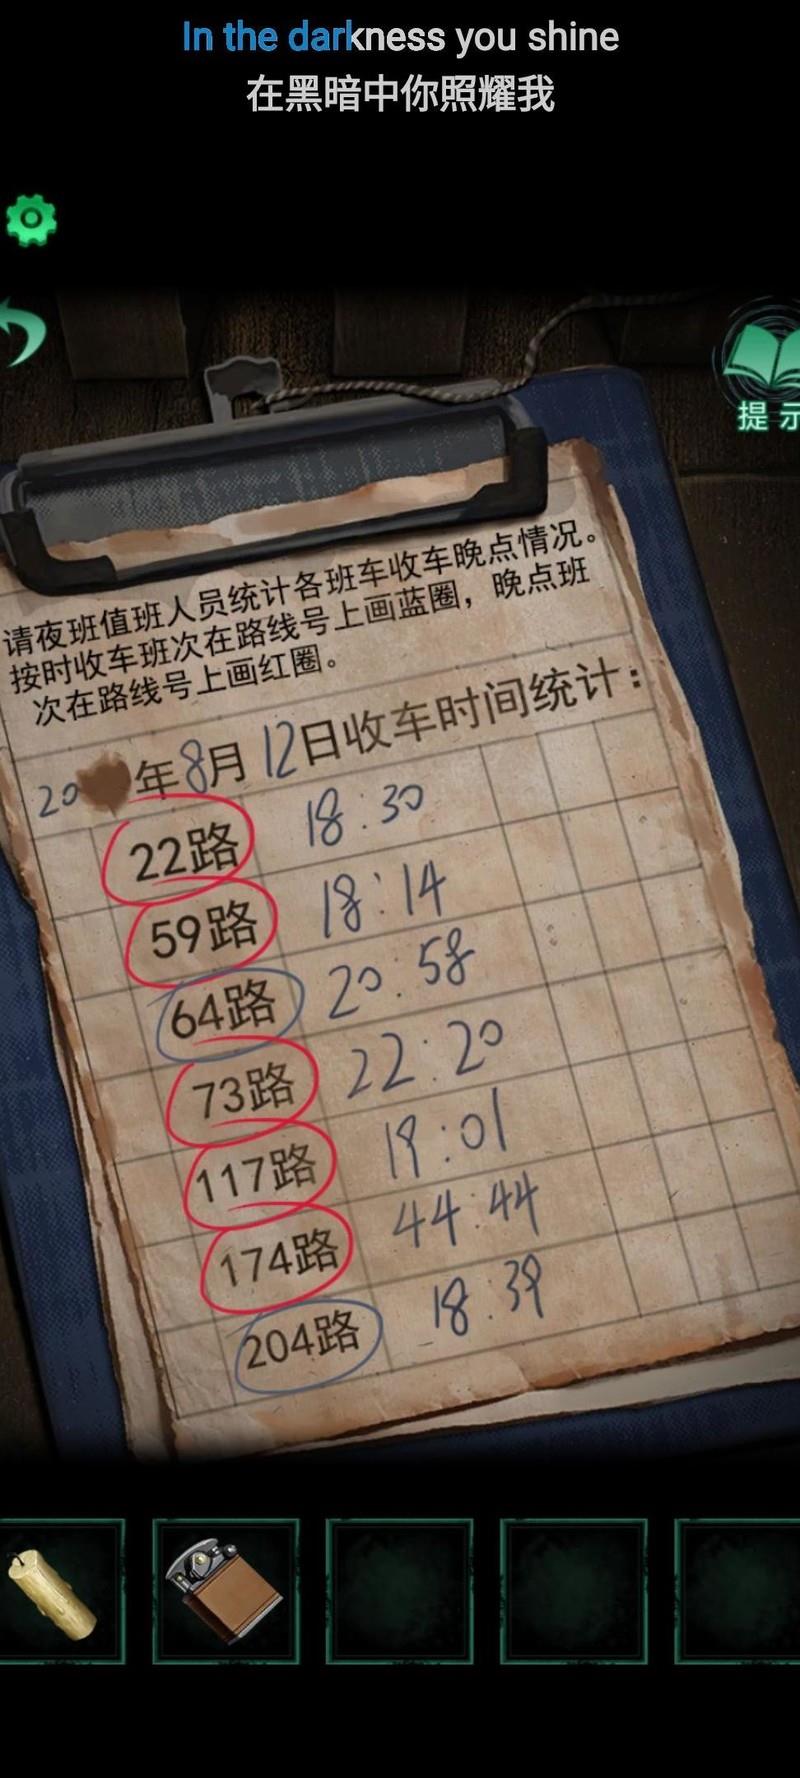 In the darkness you shine
在黑暗中你照耀我
提示
请夜班值班人员统计各班车收车晚点情况。
按时收车班次在路线号上画蓝圈，晚点班
次在路线号上画红圈。
20 年8月12日收车时间统计：
22路 18:30
59路 18:14
64路 20:58
73路 22:20
117路 19:01
174路 44:44
204路 18:39